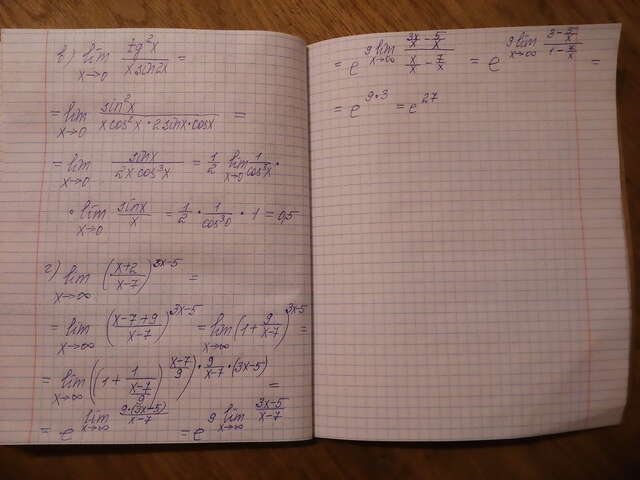 в) lim x→0 tg²x / (x sin2x) =
= lim x→0 sin²x / (x cos²x · 2 sinx · cosx) =
= lim x→0 sinx / (2x cos³x) = 1/2 lim x→0 1/cos³x ·
· lim x→0 sinx / x = 1/2 · 1/cos³0 · 1 = 0,5
г) lim x→∞ ((x+2)/(x-7))^(3x-5) =
= lim x→∞ ((x-7+9)/(x-7))^(3x-5) = lim x→∞ (1 + 9/(x-7))^(3x-5) =
= lim x→∞ ((1 + 1/((x-7)/9))^((x-7)/9))^(· 9/(x-7) · (3x-5)) =
= e^(lim x→∞ 9·(3x-5)/(x-7)) = e^(9 lim x→∞ (3x-5)/(x-7))
= e^(9 lim x→∞ (3x/x - 5/x)/(x/x - 7/x)) = e^(9 lim x→∞ (3 - 5/x)/(1 - 7/x)) =
= e^(9·3) = e^27